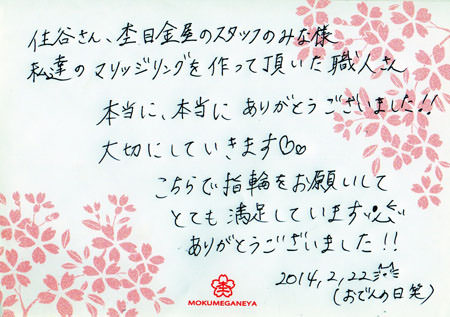 住谷さん、杢目金屋のスタッフのみな様
私達のマリッジリングを作って頂いた職人さん
本当に、本当にありがとうございました!!
大切にしていきます♡♡
こちらで指輪をお願いして
とても満足しています
ありがとうございました!!
2014,2,22
(おでんの日笑)
MOKUMEGANEYA